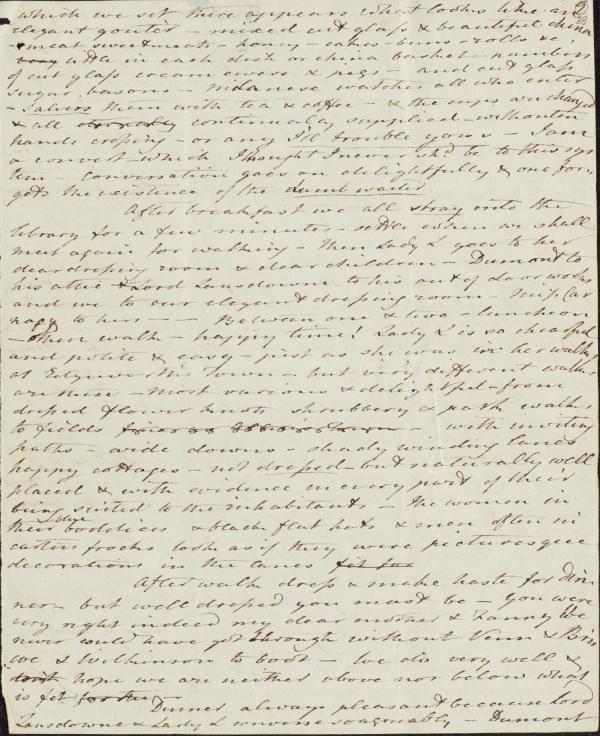 2
28
which we sit there appears what looks like an
elegant gouter – mixed cut glass & beautiful china
& meat sweetmeats – honey – cakes – buns – rolls &c
very little in each dish or china basket – numbers
of cut glass cream ewers & pigs – and cut glass
sugar basons – Milanese watches all who enter
– Salvers them with tea & coffee – & the cups are changed
& all continually supplied – without
hands crossing – or any I'll trouble yous – I am
a convert – which I thought I never shd. be to this sys
tem – conversation goes on delightfully & one for,
gets the existence of the dumb waiter
After breakfast we all stray into the
library for a few minutes – settle when we shall
meet again for walking – then Lady L goes to her
dear dressing room & dear children – Dumont to
his attic – & Lord Lansdowne to his out of door works
and we to our elegant dressing room – Miss Car
nagy to hers – – Between one & two – luncheon
– Then walk – happy time! Lady L is so cheerful
and polite & easy – just as she was in her walks
at Edgeworths Town – but very different walks
are these – most various & delightful – from
dressed flower knots shrubbery & park walks
to fields – with inviting
paths – wide downs – shady winding lanes
happy cottages – not dressed – but naturally well
placed & with evidence in every part of their
being suited to the inhabitants – The women in
their blue boddices & black flat hats & men often in
carters frocks look as if they were picturesque
decorations in the lanes fit for
After walk dress & make haste for din
ner – but well dressed you must be – You were
very right indeed my dear mother & Fanny We
never could have got through without Venn & Bris
we & Wilkinson to boot – We do very well &
hope we are neither above nor below what
is fit for the
Dinner always pleasant because Lord
Lansdowne & Lady L converse so agreeably – Dumont